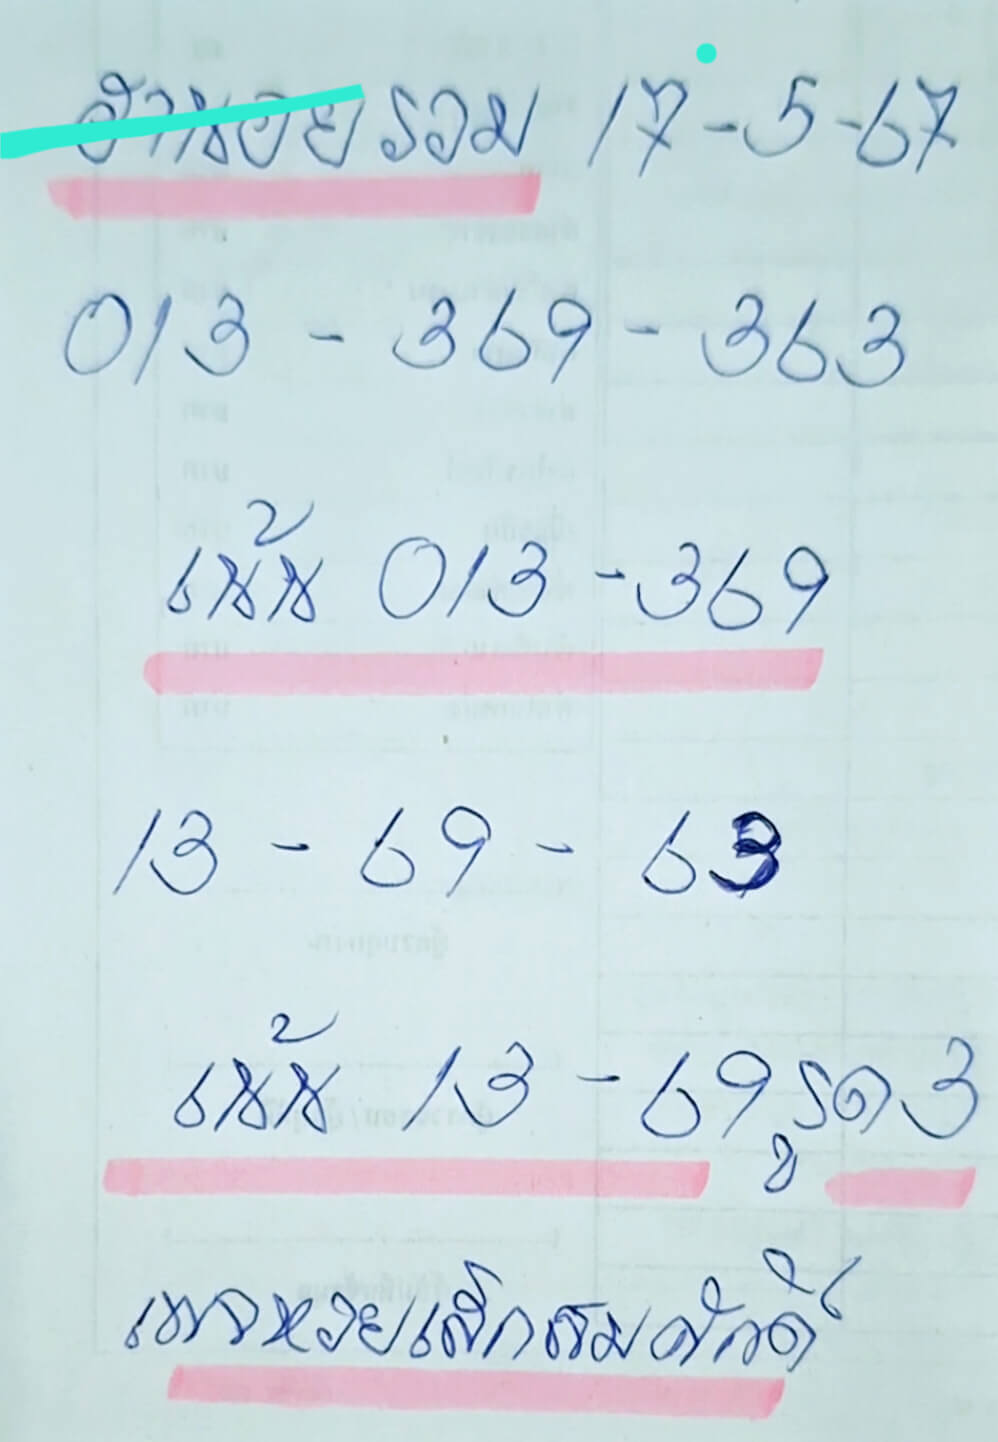 ฮานอยรวม 17-5-67
013 - 369 - 363
เน้น 013 - 369
13 - 69 - 63
เน้น 13 - 69 รูด 3
เพจหวยเล็กสมศักดิ์